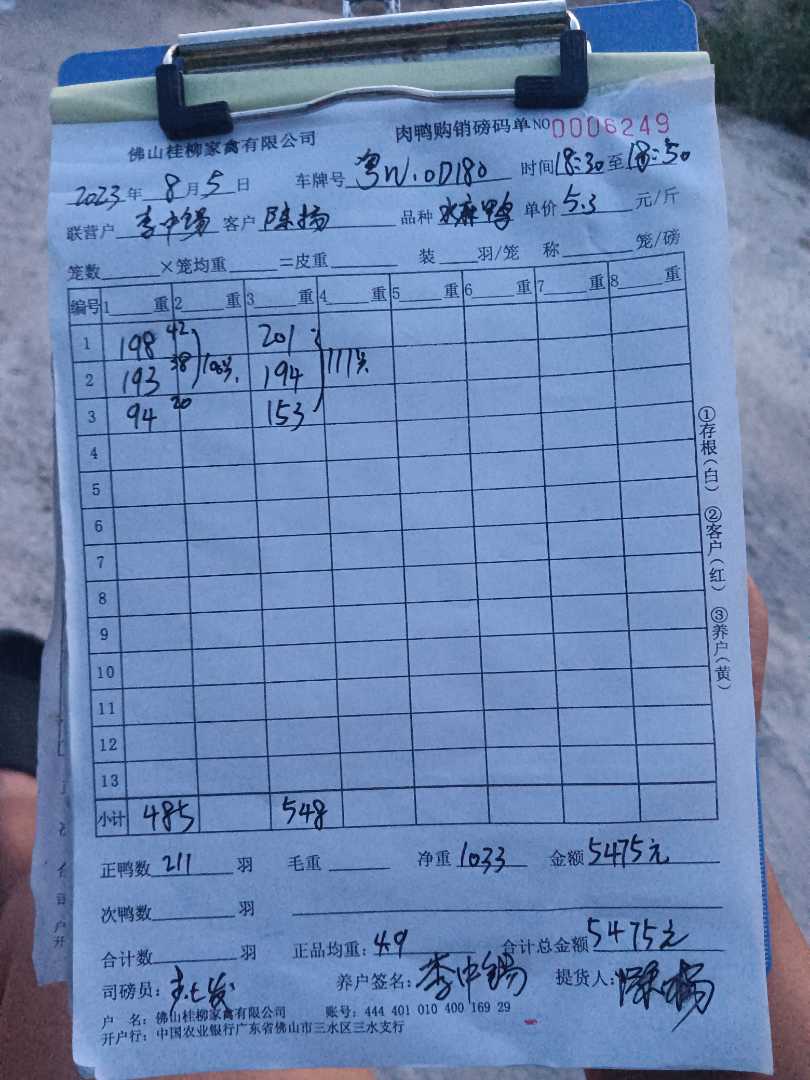 佛山桂柳家禽有限公司 肉鸭购销磅码单 NO 0006249
2023年8月5日 车牌号粤W.0D180 时间18:30至18:50
联营户李中锡 客户陈扬 品种水麻鸭 单价5.3元/斤
笼数 ×笼均重 =皮重 装 羽/笼 称 笼/磅
编号 1 重 2 重 3 重 4 重 5 重 6 重 7 重 8 重
1 198 42 201
2 193 38 100只. 194 111只
3 94 20 153
4
5
6
7
8
9
10
11
12
13
小计 485 548
正鸭数 211 羽 毛重 净重 1033 金额 5475元
次鸭数 羽
合计数 羽 正品均重: 4.9 合计总金额 5475元
司磅员: 养户签名: 李中锡 提货人: 陈扬
户 名: 佛山桂柳家禽有限公司 账号: 444 401 010 400 169 29
开户行: 中国农业银行广东省佛山市三水区三水支行
①存根(白) ②客户(红) ③养户(黄)